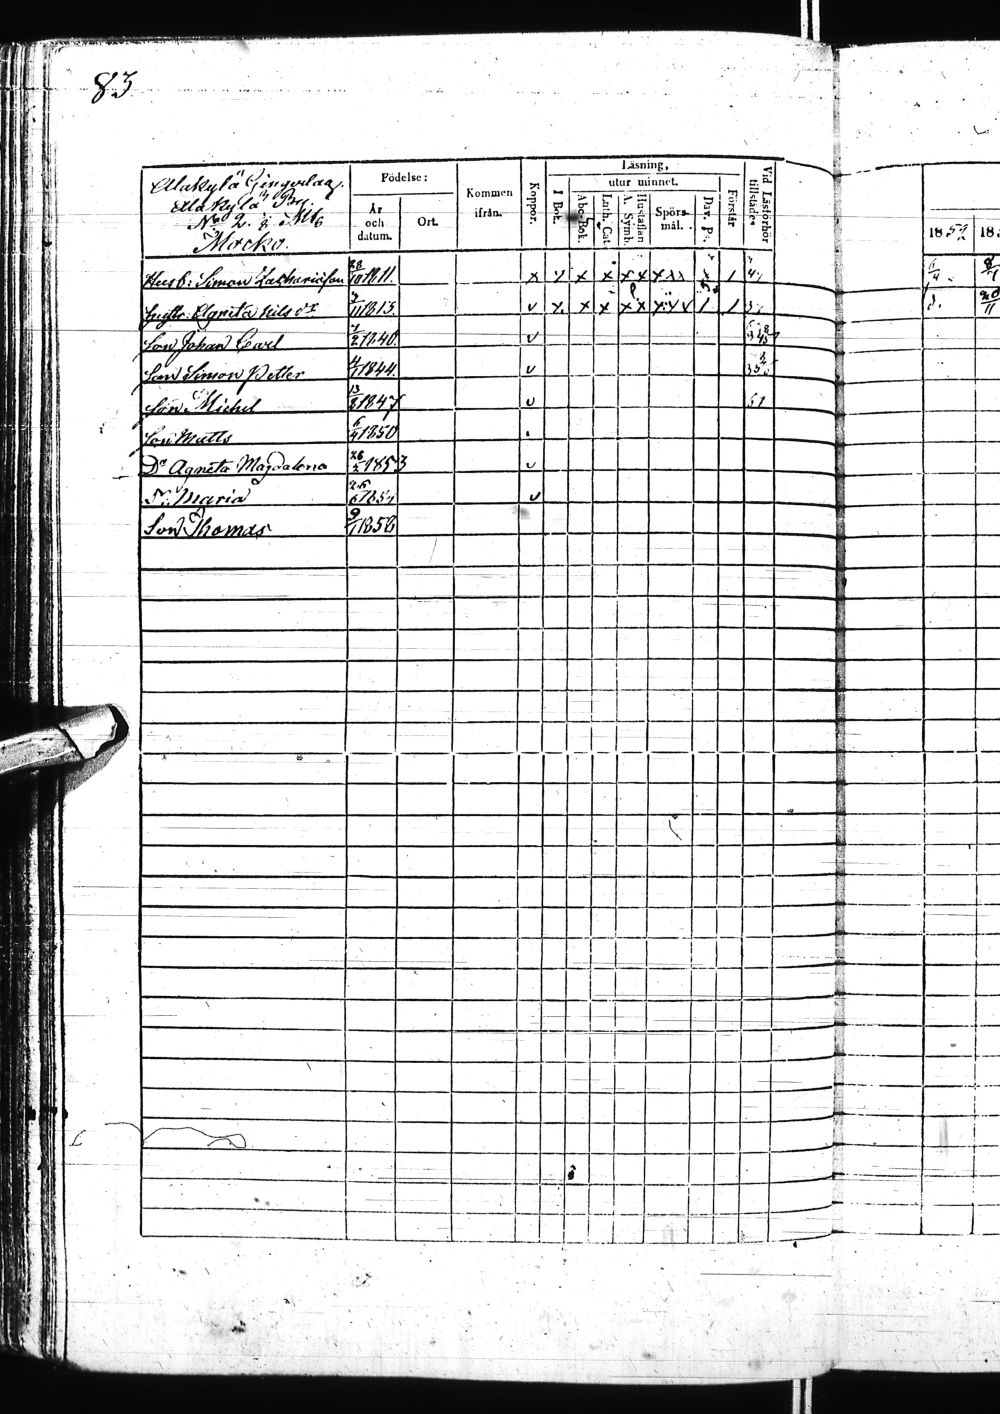 83
Alakylä Gingerdag.
Alakylä By.
No 2. Mtl.
Mocko.
Födelse:
År och datum.
Ort.
Kommen ifrån.
Koppor.
Läsning,
utur minnet.
I Bok.
Abc-Bok.
Luth. Cat.
Hustaflan A. Symb.
Spörsmål.
Dav. Ps.
Förstår
Vid Läsförhör tillstädes
1852 18
Husb: Simon Zachariason 28/10 1811. x x x x x x x
Agneta Nils dr 7/11 1813. v x x x x x 1 1
Son Johan Carl 7/2 1840. v
Son Simon Petter 4/1 1844. v
Son Michel 13/8 1847 v 51
Son Matts 6/4 1850
Dr Agneta Magdalena 26/2 1853 v
Maria 25/6 v
Son Thomas 9/1 1858